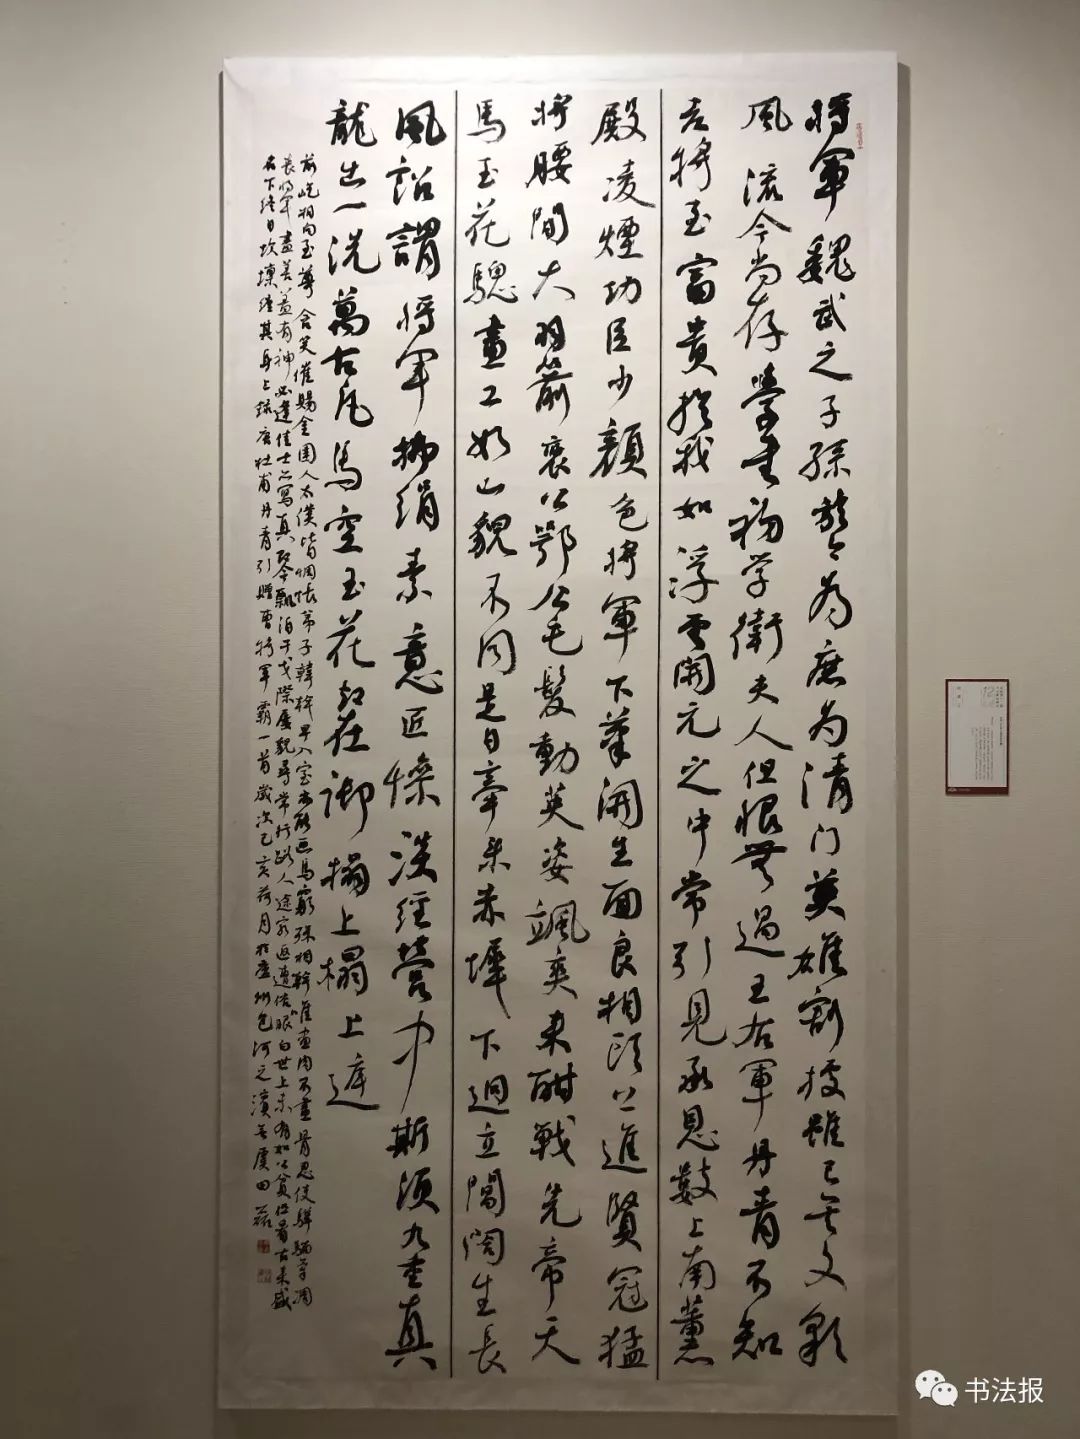 將軍魏武之子孫於今為庶為清門英雄割據雖已矣文彩
風流今尚存學書初学衛夫人但恨無過王右軍丹青不知
老將至富貴於我如浮雲開元之中常引見承恩數上南薰
殿凌煙功臣少顏色將軍下筆開生面良相頭上進賢冠猛
將腰間大羽箭褒公鄂公毛髮動英姿颯爽来酣戰先帝天
馬玉花驄畫工如山貌不同是日牽来赤墀下迥立閶闔生長
風詔謂將軍拂絹素意匠慘淡經營中斯須九重真
龍出一洗萬古凡馬空玉花却在御榻上榻上遲
前屹相向至尊含笑催賜金圉人太僕皆惆悵弟子韓幹早入室亦能画馬窮殊相幹唯畫肉不畫骨忍使驊騮氣凋
喪將軍畫善蓋有神必逢佳士亦寫真即今飄泊干戈際屢貌尋常行路人途窮返遭俗眼白世上未有如公貧但看古来盛
名下終日坎壈纏其身上錄唐杜甫丹青引贈曹將軍霸一首歲次己亥荷月於廬州包河之濱
书法报